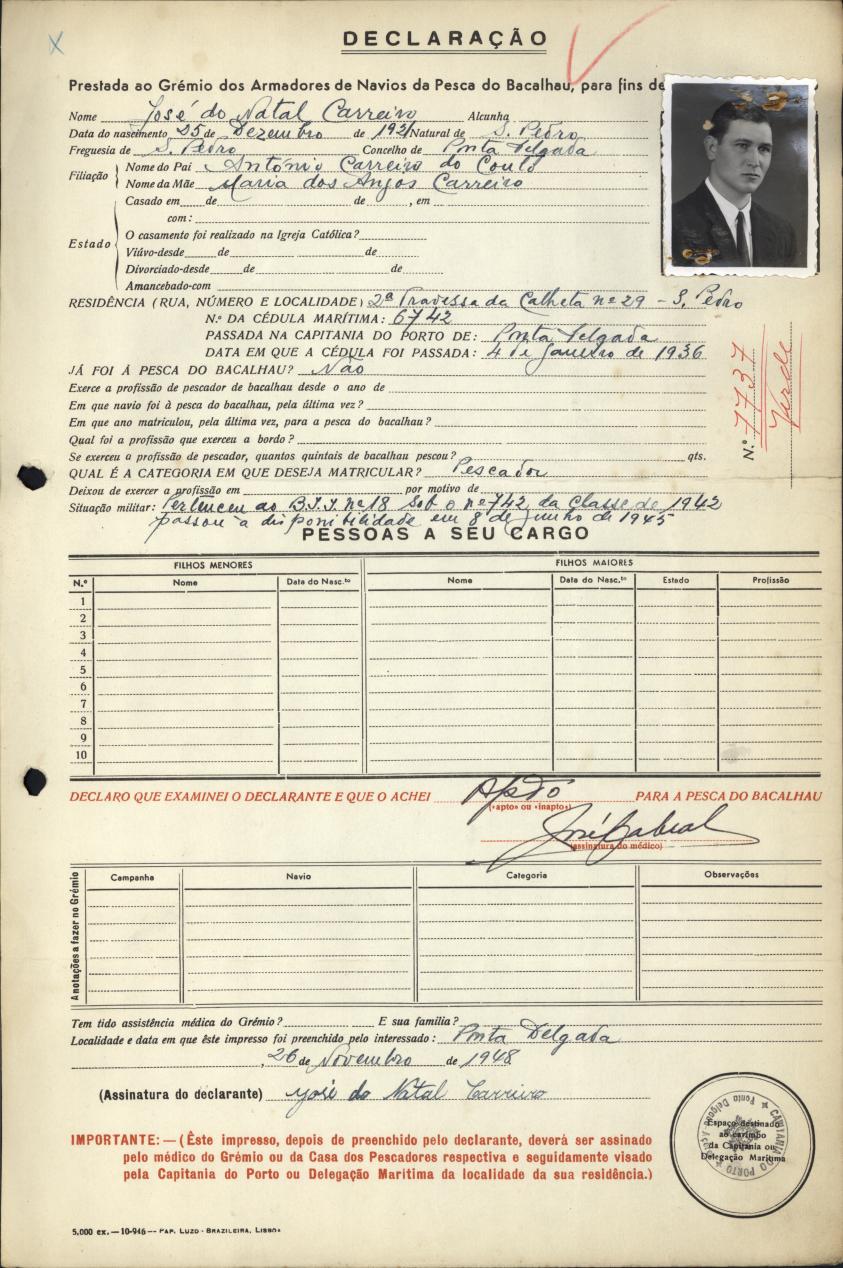 DECLARAÇÃO
Prestada ao Grémio dos Armadores de Navios da Pesca do Bacalhau, para fins de
Nome José do Natal Carreiro Alcunha
Data do nascimento 25 de Dezembro de 1921 Natural de S. Pedro
Freguesia de S. Pedro Concelho de Ponta Delgada
Filiação
Nome do Pai António Carreiro do Couto
Nome da Mãe Maria dos Anjos Carreiro
Estado
Casado em de de , em
com:
O casamento foi realizado na Igreja Católica?
Viúvo-desde de de
Divorciado-desde de de
Amancebado-com
RESIDÊNCIA (RUA, NÚMERO E LOCALIDADE) 2ª Travessa da Calheta nº 29 - S. Pedro
N.º DA CÉDULA MARÍTIMA: 6742
PASSADA NA CAPITANIA DO PORTO DE: Ponta Delgada
DATA EM QUE A CÉDULA FOI PASSADA: 4 de Janeiro de 1936
N.º 7737
Verde
JÁ FOI Á PESCA DO BACALHAU? Não
Exerce a profissão de pescador de bacalhau desde o ano de
Em que navio foi à pesca do bacalhau, pela última vez?
Em que ano matriculou, pela última vez, para a pesca do bacalhau?
Qual foi a profissão que exerceu a bordo?
Se exerceu a profissão de pescador, quantos quintais de bacalhau pescou? qts.
QUAL É A CATEGORIA EM QUE DESEJA MATRICULAR? Pescador
Deixou de exercer a profissão em por motivo de
Situação militar: Pertenceu ao B.I.I. nº 18 sob o nº 742 da classe de 1942
passou à disponibilidade em 8 de Junho de 1945
PESSOAS A SEU CARGO
FILHOS MENORES FILHOS MAIORES
N.º Nome Data do Nasc.to Nome Data do Nasc.to Estado Profissão
1
2
3
4
5
6
7
8
9
10
DECLARO QUE EXAMINEI O DECLARANTE E QUE O ACHEI Apto PARA A PESCA DO BACALHAU
(«apto» ou «inapto»)
José Cabral
(assinatura do médico)
Anotações a fazer no Grémio
Campanha Navio Categoria Observações
Tem tido assistência médica do Grémio? E sua família?
Localidade e data em que êste impresso foi preenchido pelo interessado: Ponta Delgada
, 26 de Novembro de 1948
(Assinatura do declarante) José do Natal Carreiro
IMPORTANTE: — (Êste impresso, depois de preenchido pelo declarante, deverá ser assinado
pelo médico do Grémio ou da Casa dos Pescadores respectiva e seguidamente visado
pela Capitania do Porto ou Delegação Maritima da localidade da sua residência.)
Espaço destinado
ao carimbo
da Capitania ou
Delegação Maritima
CAPITANIA DO PORTO
Ponta Delgada
5.000 ex. — 10-946 — PAP. LUZO-BRAZILEIRA, LISBOA